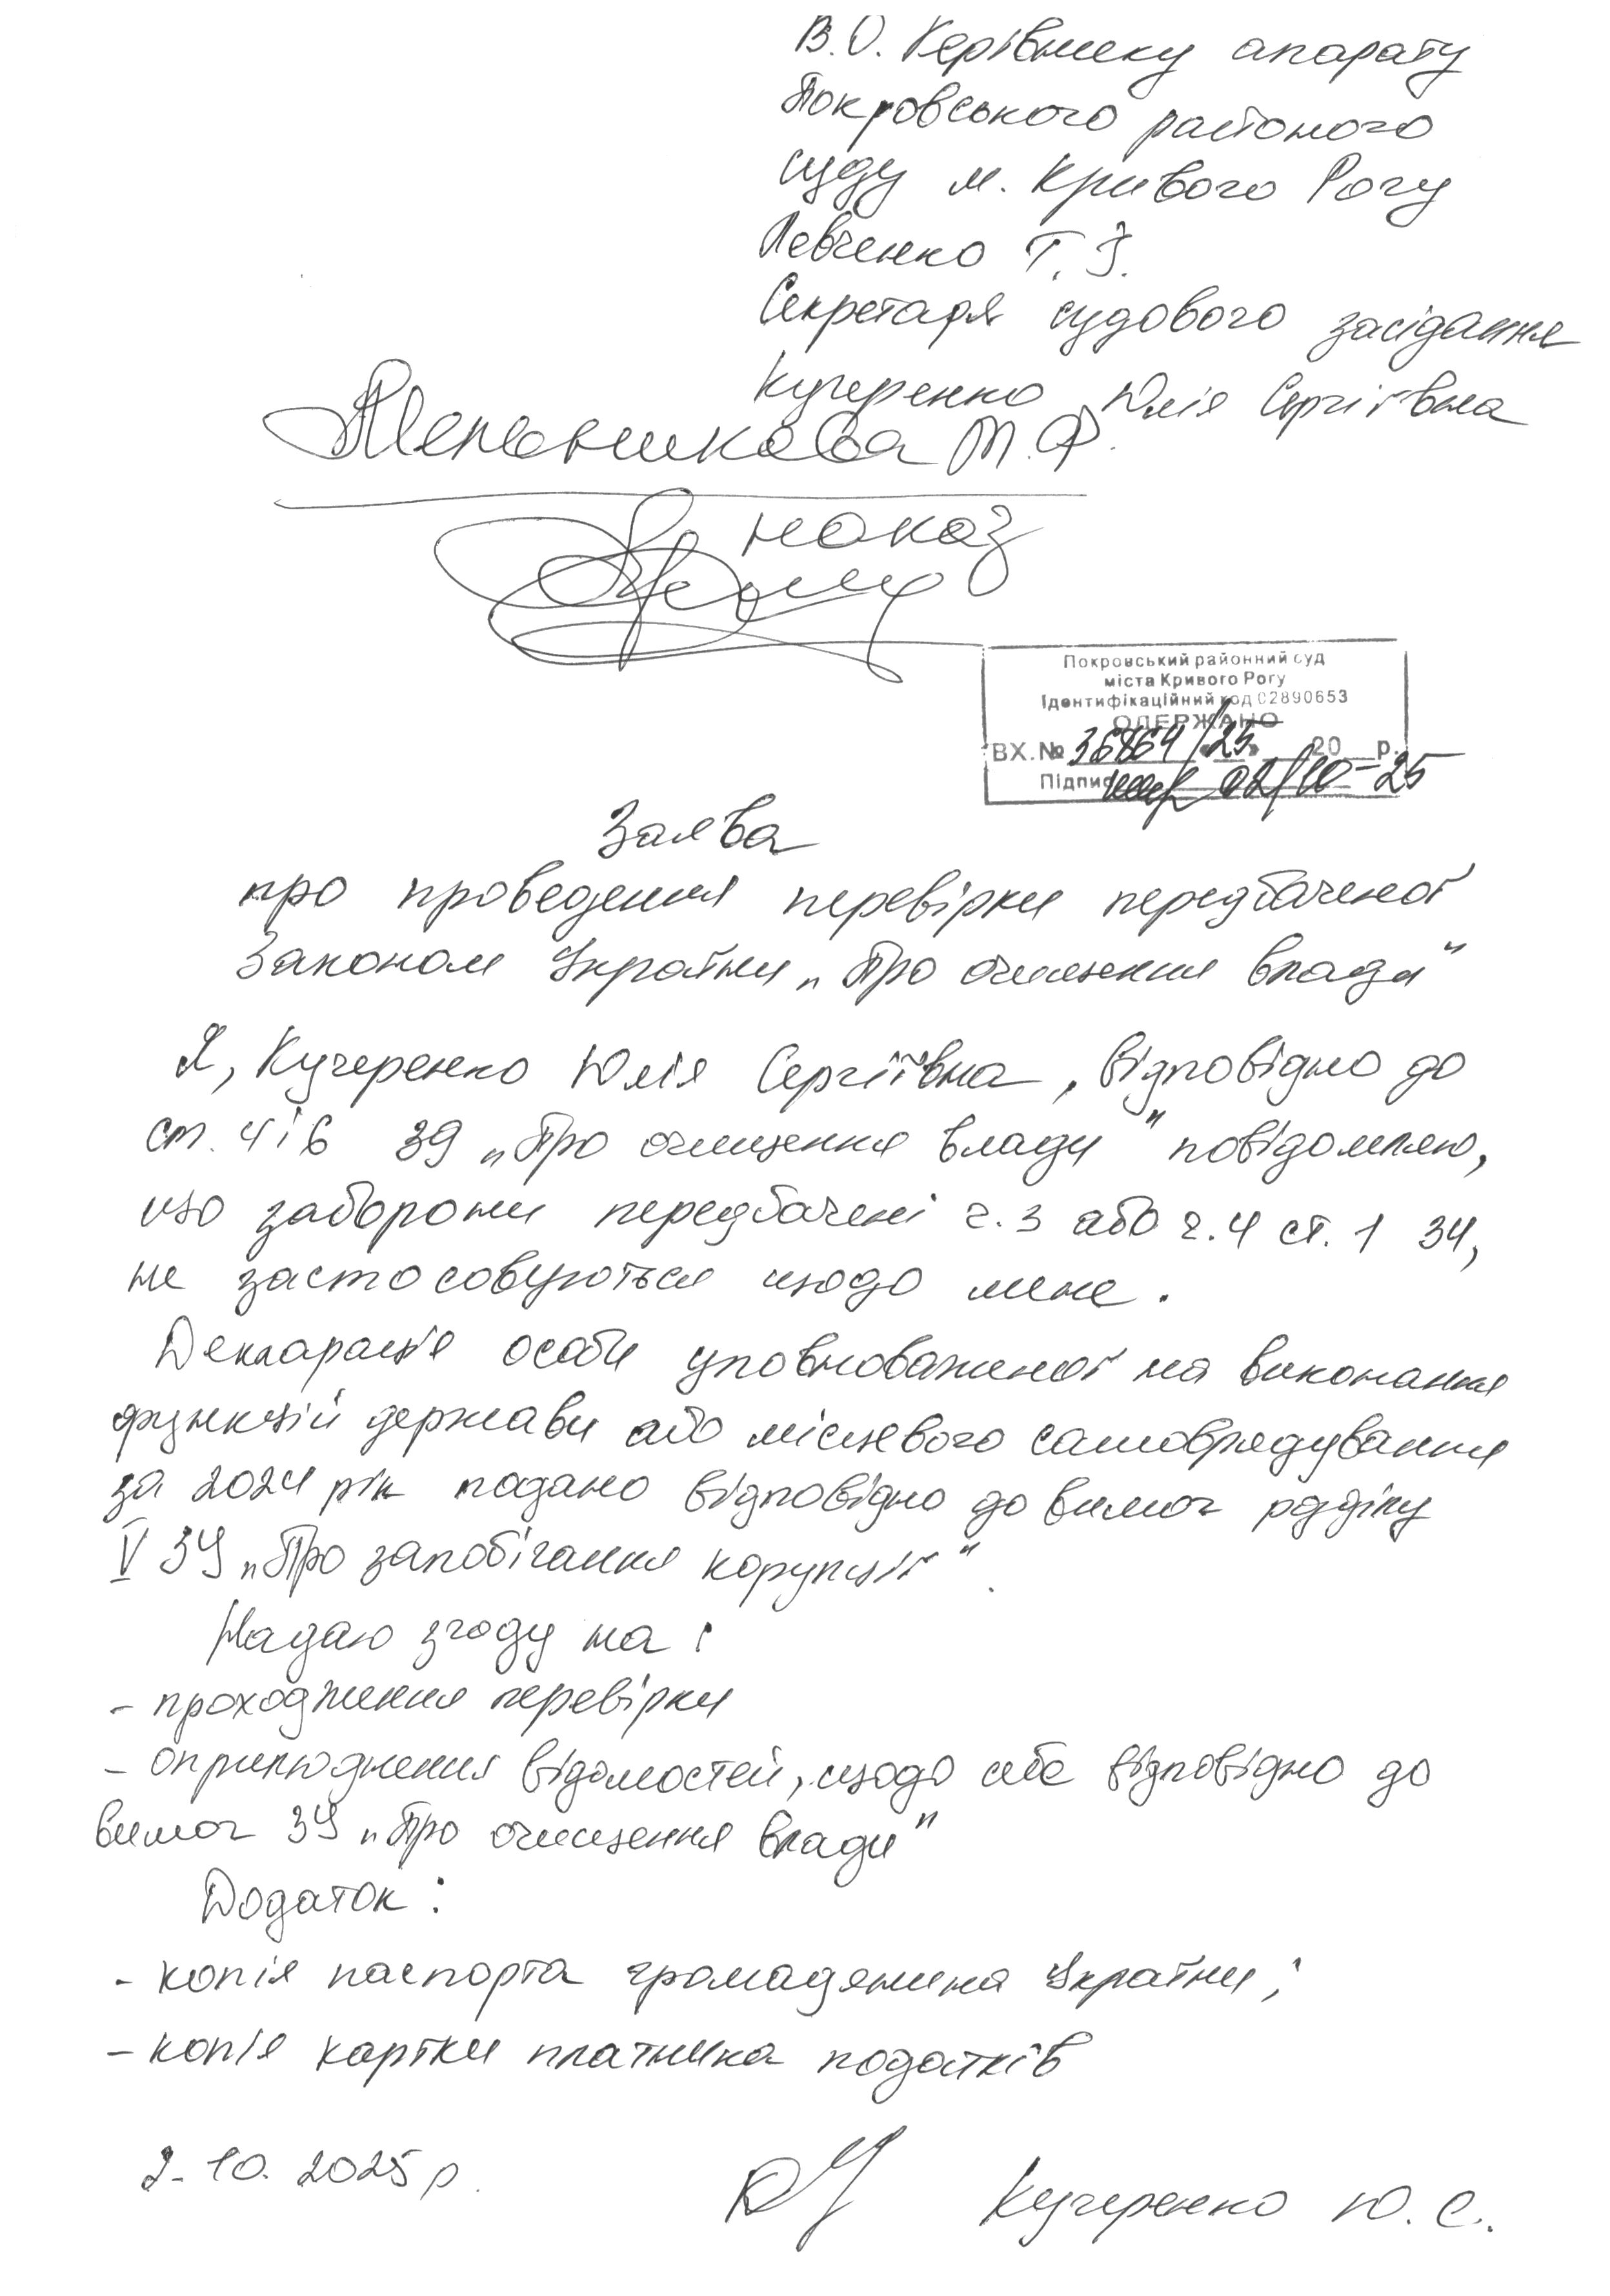 В.О. Керівнику апарату
Покровського районого
суду м. Кривого Рогу
Левченко Т. І.
Секретаря судового засідання
Кучеренко Юлія Сергіївна
Мельникова М.Ф.
наказ
Покровський районний суд
міста Кривого Рогу
Ідентифікаційний код 02890653
ОДЕРЖАНО
ВХ.№ /25 20 р.
Підпис 02/10-25
Заява
про проведення перевірки передбаченої
Законом України „Про очищення влади"
Я, Кучеренко Юлія Сергіївна, відповідно до
ст. 4 і 6 ЗУ „Про очищення влади" повідомляю,
що заборони передбачені ч.3 або ч.4 ст. 1 ЗУ,
не застосовуються щодо мене.
Декларація особи уповноваженої на виконання
функцій держави або місцевого самоврядування
за 2024 рік подано відповідно до вимог розділу
V ЗУ „Про запобігання корупції".
Надаю згоду на:
- проходження перевірки
- оприлюднення відомостей, щодо себе відповідно до
вимог ЗУ „Про очищення влади"
Додаток:
- копія паспорта громадянина України;
- копія картки платника податків
2.10.2025 р.
Кучеренко Ю. С.